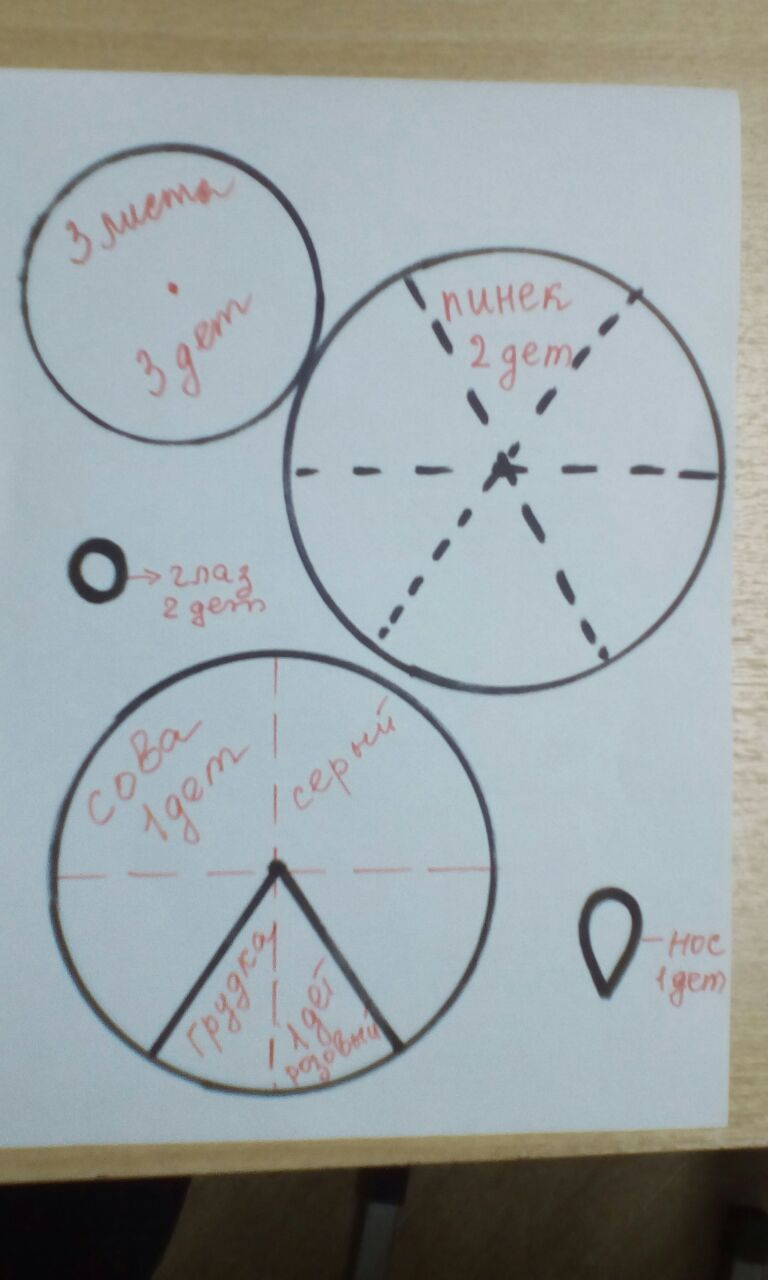 3 листа
3 дет
пинек
2 дет
глаз
2 дет
сова
1 дет
серый
грудка
1 дет
розовый
нос
1 дет